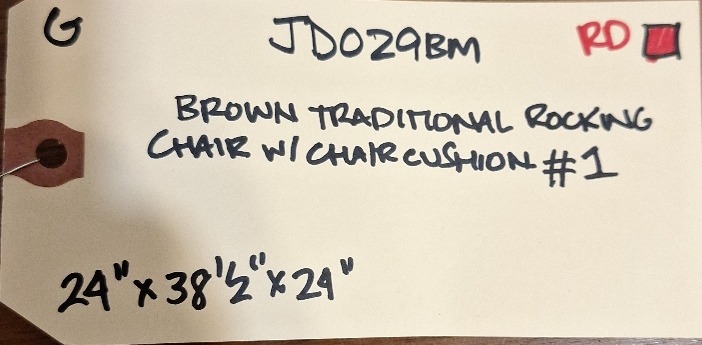 G JD029BM RD
BROWN TRADITIONAL ROCKING
CHAIR W/ CHAIR CUSHION #1
24" x 38 1/2" x 24"